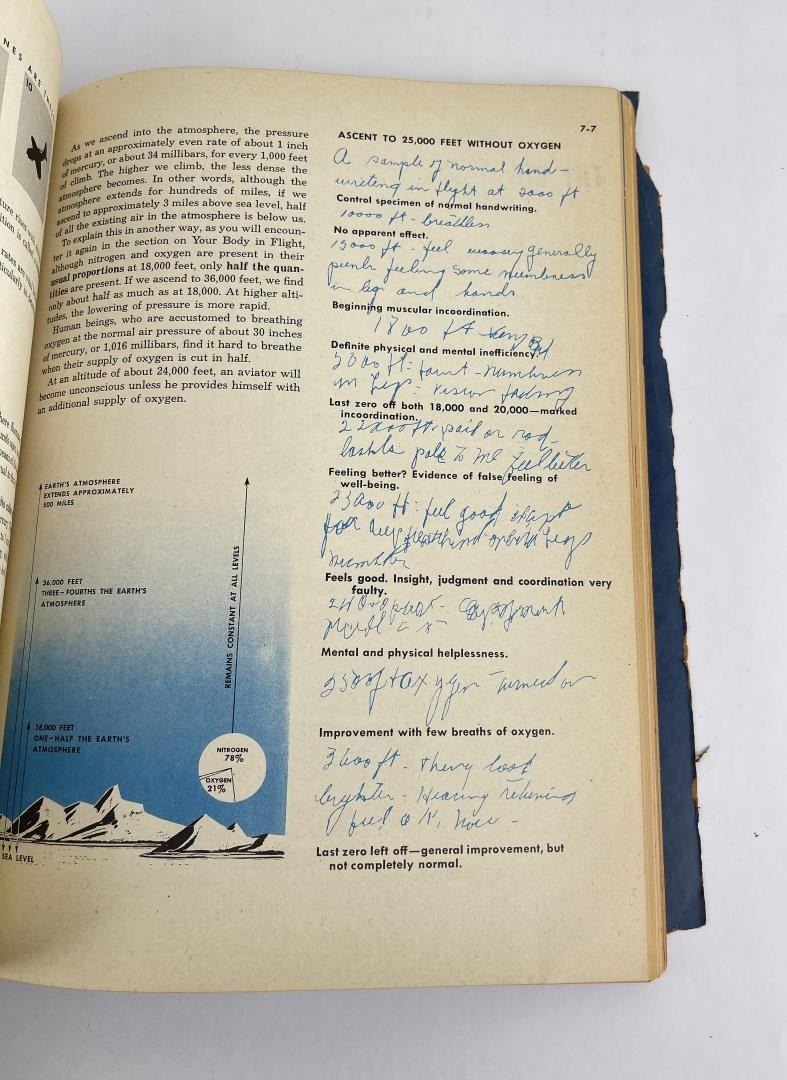 NES ARE THE
10
As we ascend into the atmosphere, the pressure
drops at an approximately even rate of about 1 inch
of mercury, or about 34 millibars, for every 1,000 feet
of climb. The higher we climb, the less dense the
atmosphere becomes. In other words, although the
atmosphere extends for hundreds of miles, if we
ascend to approximately 3 miles above sea level, half
of all the existing air in the atmosphere is below us.
To explain this in another way, as you will encoun-
ter it again in the section on Your Body in Flight,
although nitrogen and oxygen are present in their
usual proportions at 18,000 feet, only half the quan-
tities are present. If we ascend to 36,000 feet, we find
only about half as much as at 18,000. At higher alti-
tudes, the lowering of pressure is more rapid.
Human beings, who are accustomed to breathing
oxygen at the normal air pressure of about 30 inches
of mercury, or 1,016 millibars, find it hard to breathe
when their supply of oxygen is cut in half.
At an altitude of about 24,000 feet, an aviator will
become unconscious unless he provides himself with
an additional supply of oxygen.
EARTH'S ATMOSPHERE
EXTENDS APPROXIMATELY
500 MILES
36,000 FEET
THREE-FOURTHS THE EARTH'S
ATMOSPHERE
18,000 FEET
ONE-HALF THE EARTH'S
ATMOSPHERE
REMAINS CONSTANT AT ALL LEVELS
NITROGEN
78%
OXYGEN
21%
SEA LEVEL
7-7
ASCENT TO 25,000 FEET WITHOUT OXYGEN
A sample of normal hand-
writing in flight at 2000 ft
Control specimen of normal handwriting.
10000 ft - breathless
No apparent effect.
15000 ft - feel woozy generally
feeling some numbness
in legs and hands
Beginning muscular incoordination.
1800 ft Very Bad
Definite physical and mental inefficiency.
2000 ft - faint - numbness
in legs - vision fading
Last zero off both 18,000 and 20,000—marked
incoordination.
22000 ft
pale to me feel better
Feeling better? Evidence of false feeling of
well-being.
23000 ft - feel good except
for deep breathing legs
Feels good. Insight, judgment and coordination very
faulty.
Mental and physical helplessness.
2500 ft oxygen turned on
Improvement with few breaths of oxygen.
ft - look
brighter - Hearing returning
feel O.K. now -
Last zero left off—general improvement, but
not completely normal.